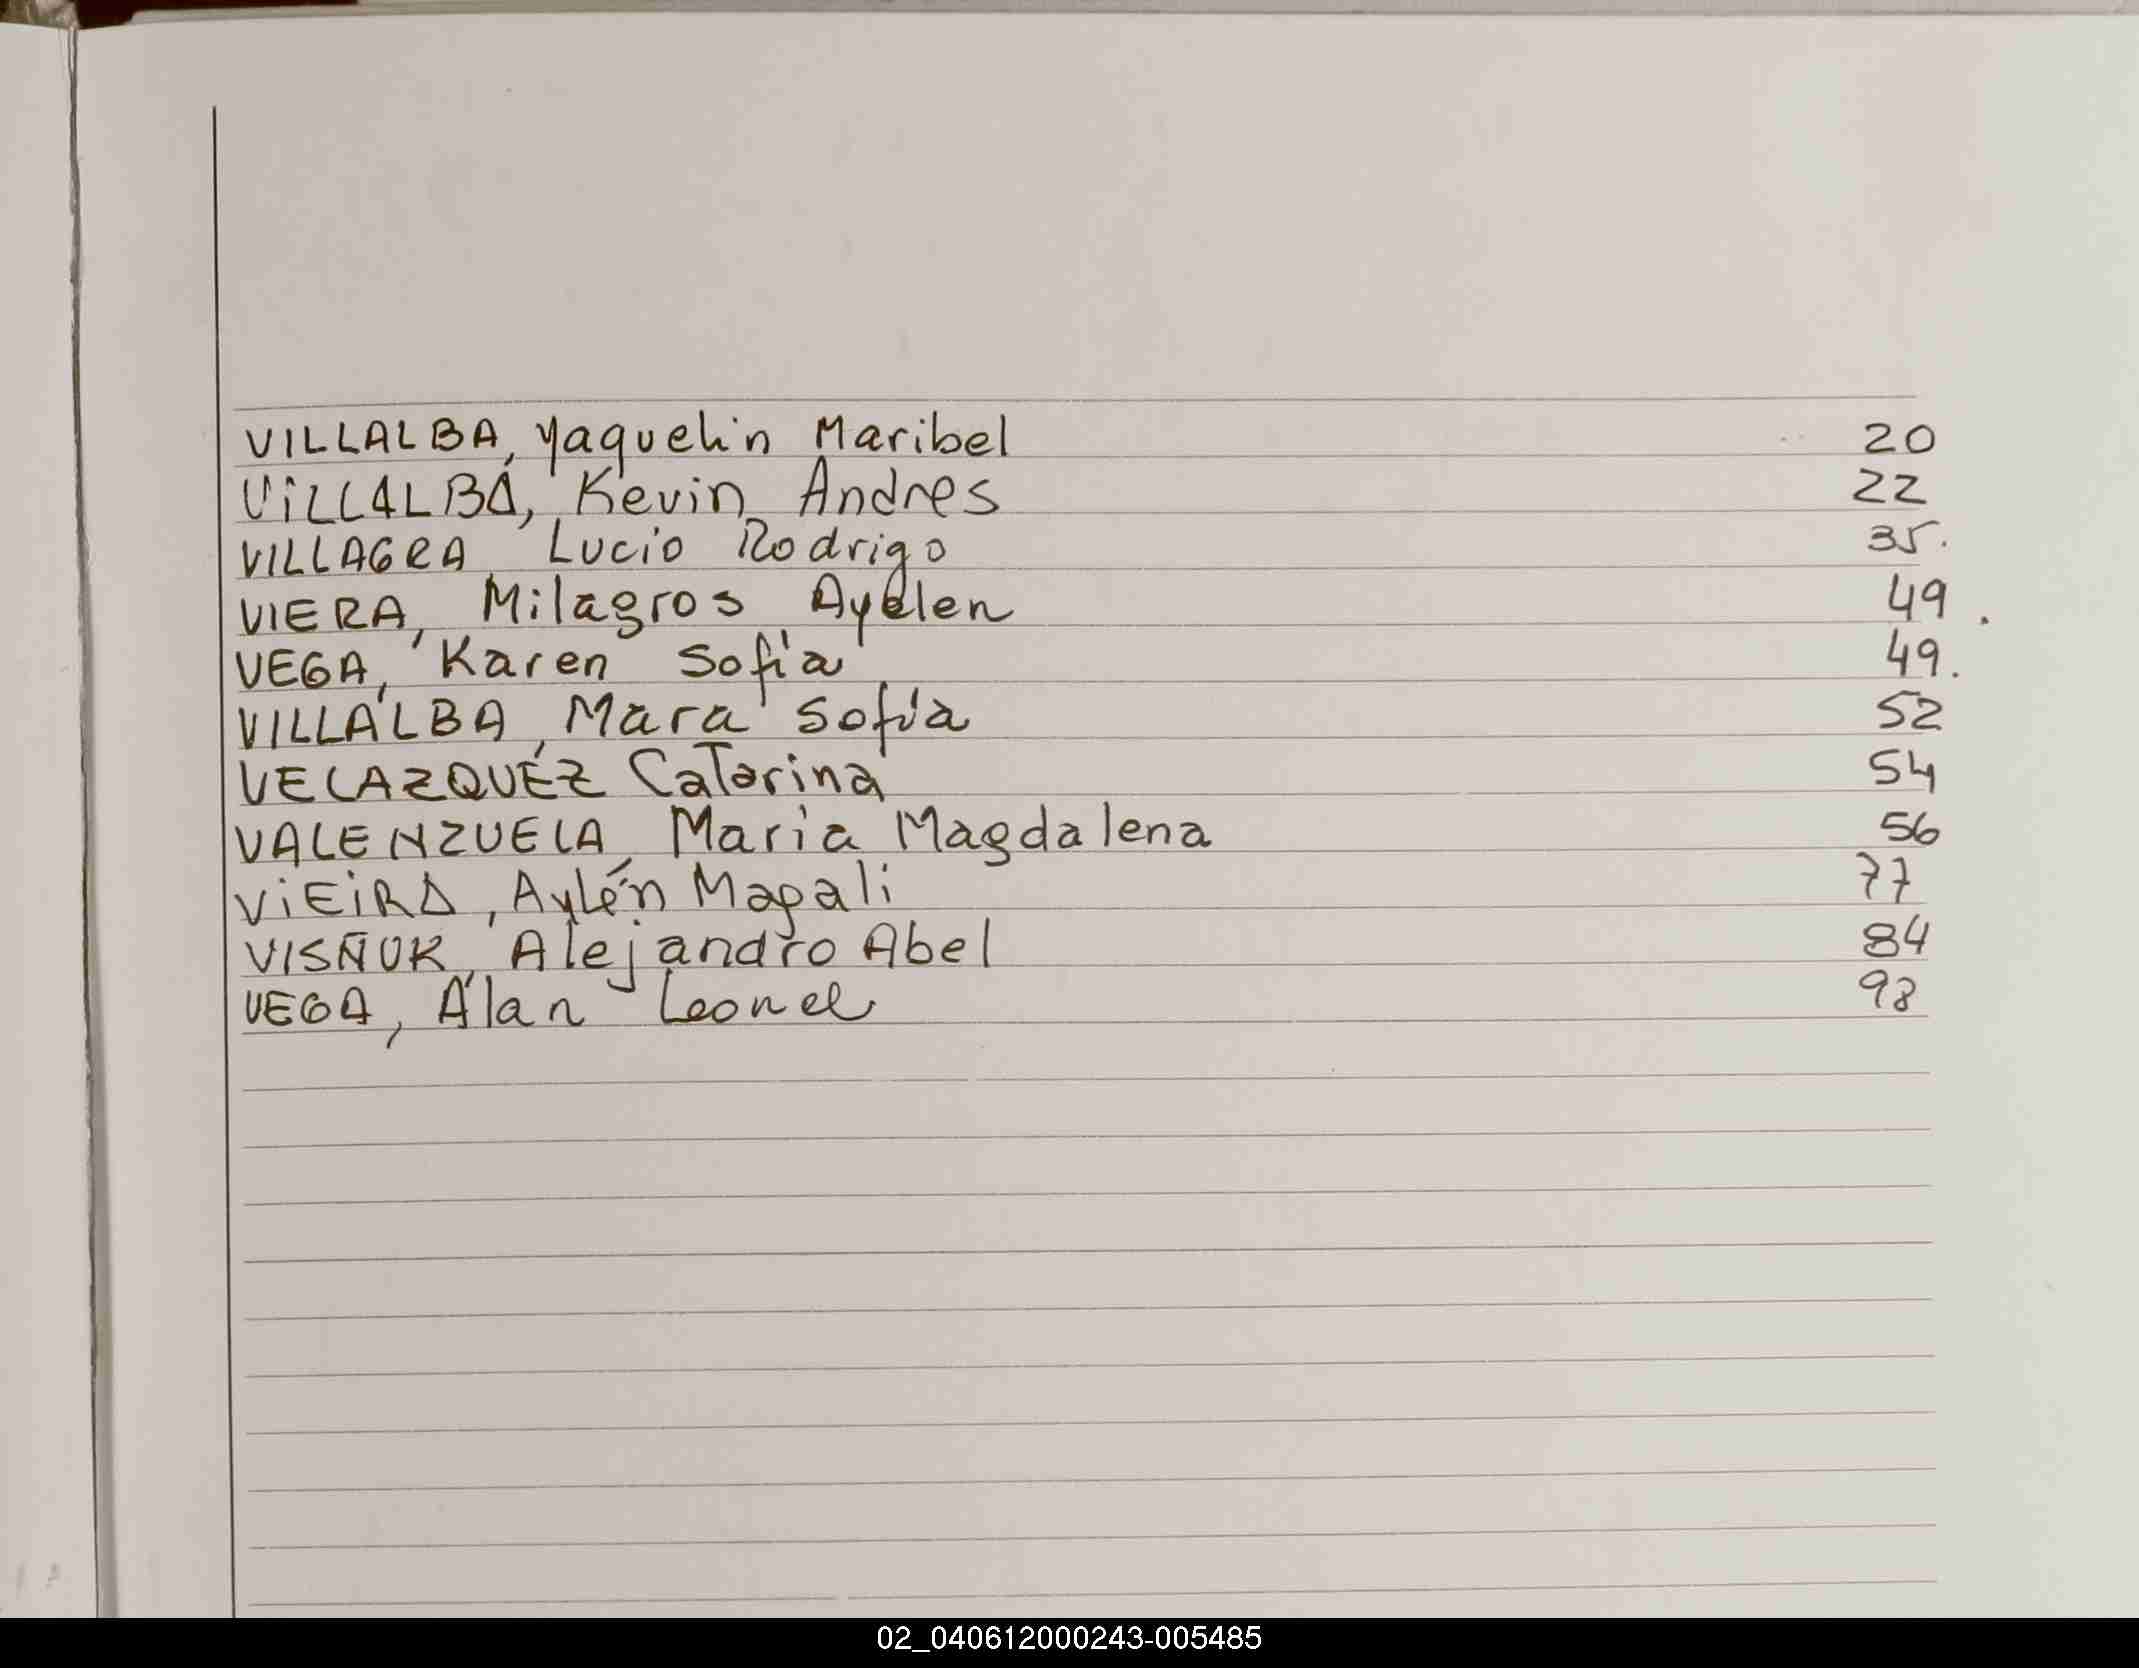 VILLALBA, Yaquelín Maribel 20
VILLALBA, Kevin Andres 22
VILLAGRA Lucio Rodrigo 35.
VIERA, Milagros Ayelen 49.
VEGA, Karen Sofía 49.
VILLALBA, Mara Sofía 52
VELAZQUEZ Catarina 54
VALENZUELA Maria Magdalena 56
VIEIRA, Aylén Magali 77
VISÑUK, Alejandro Abel 84
VEGA, Alan Leonel 98
02_040612000243-005485